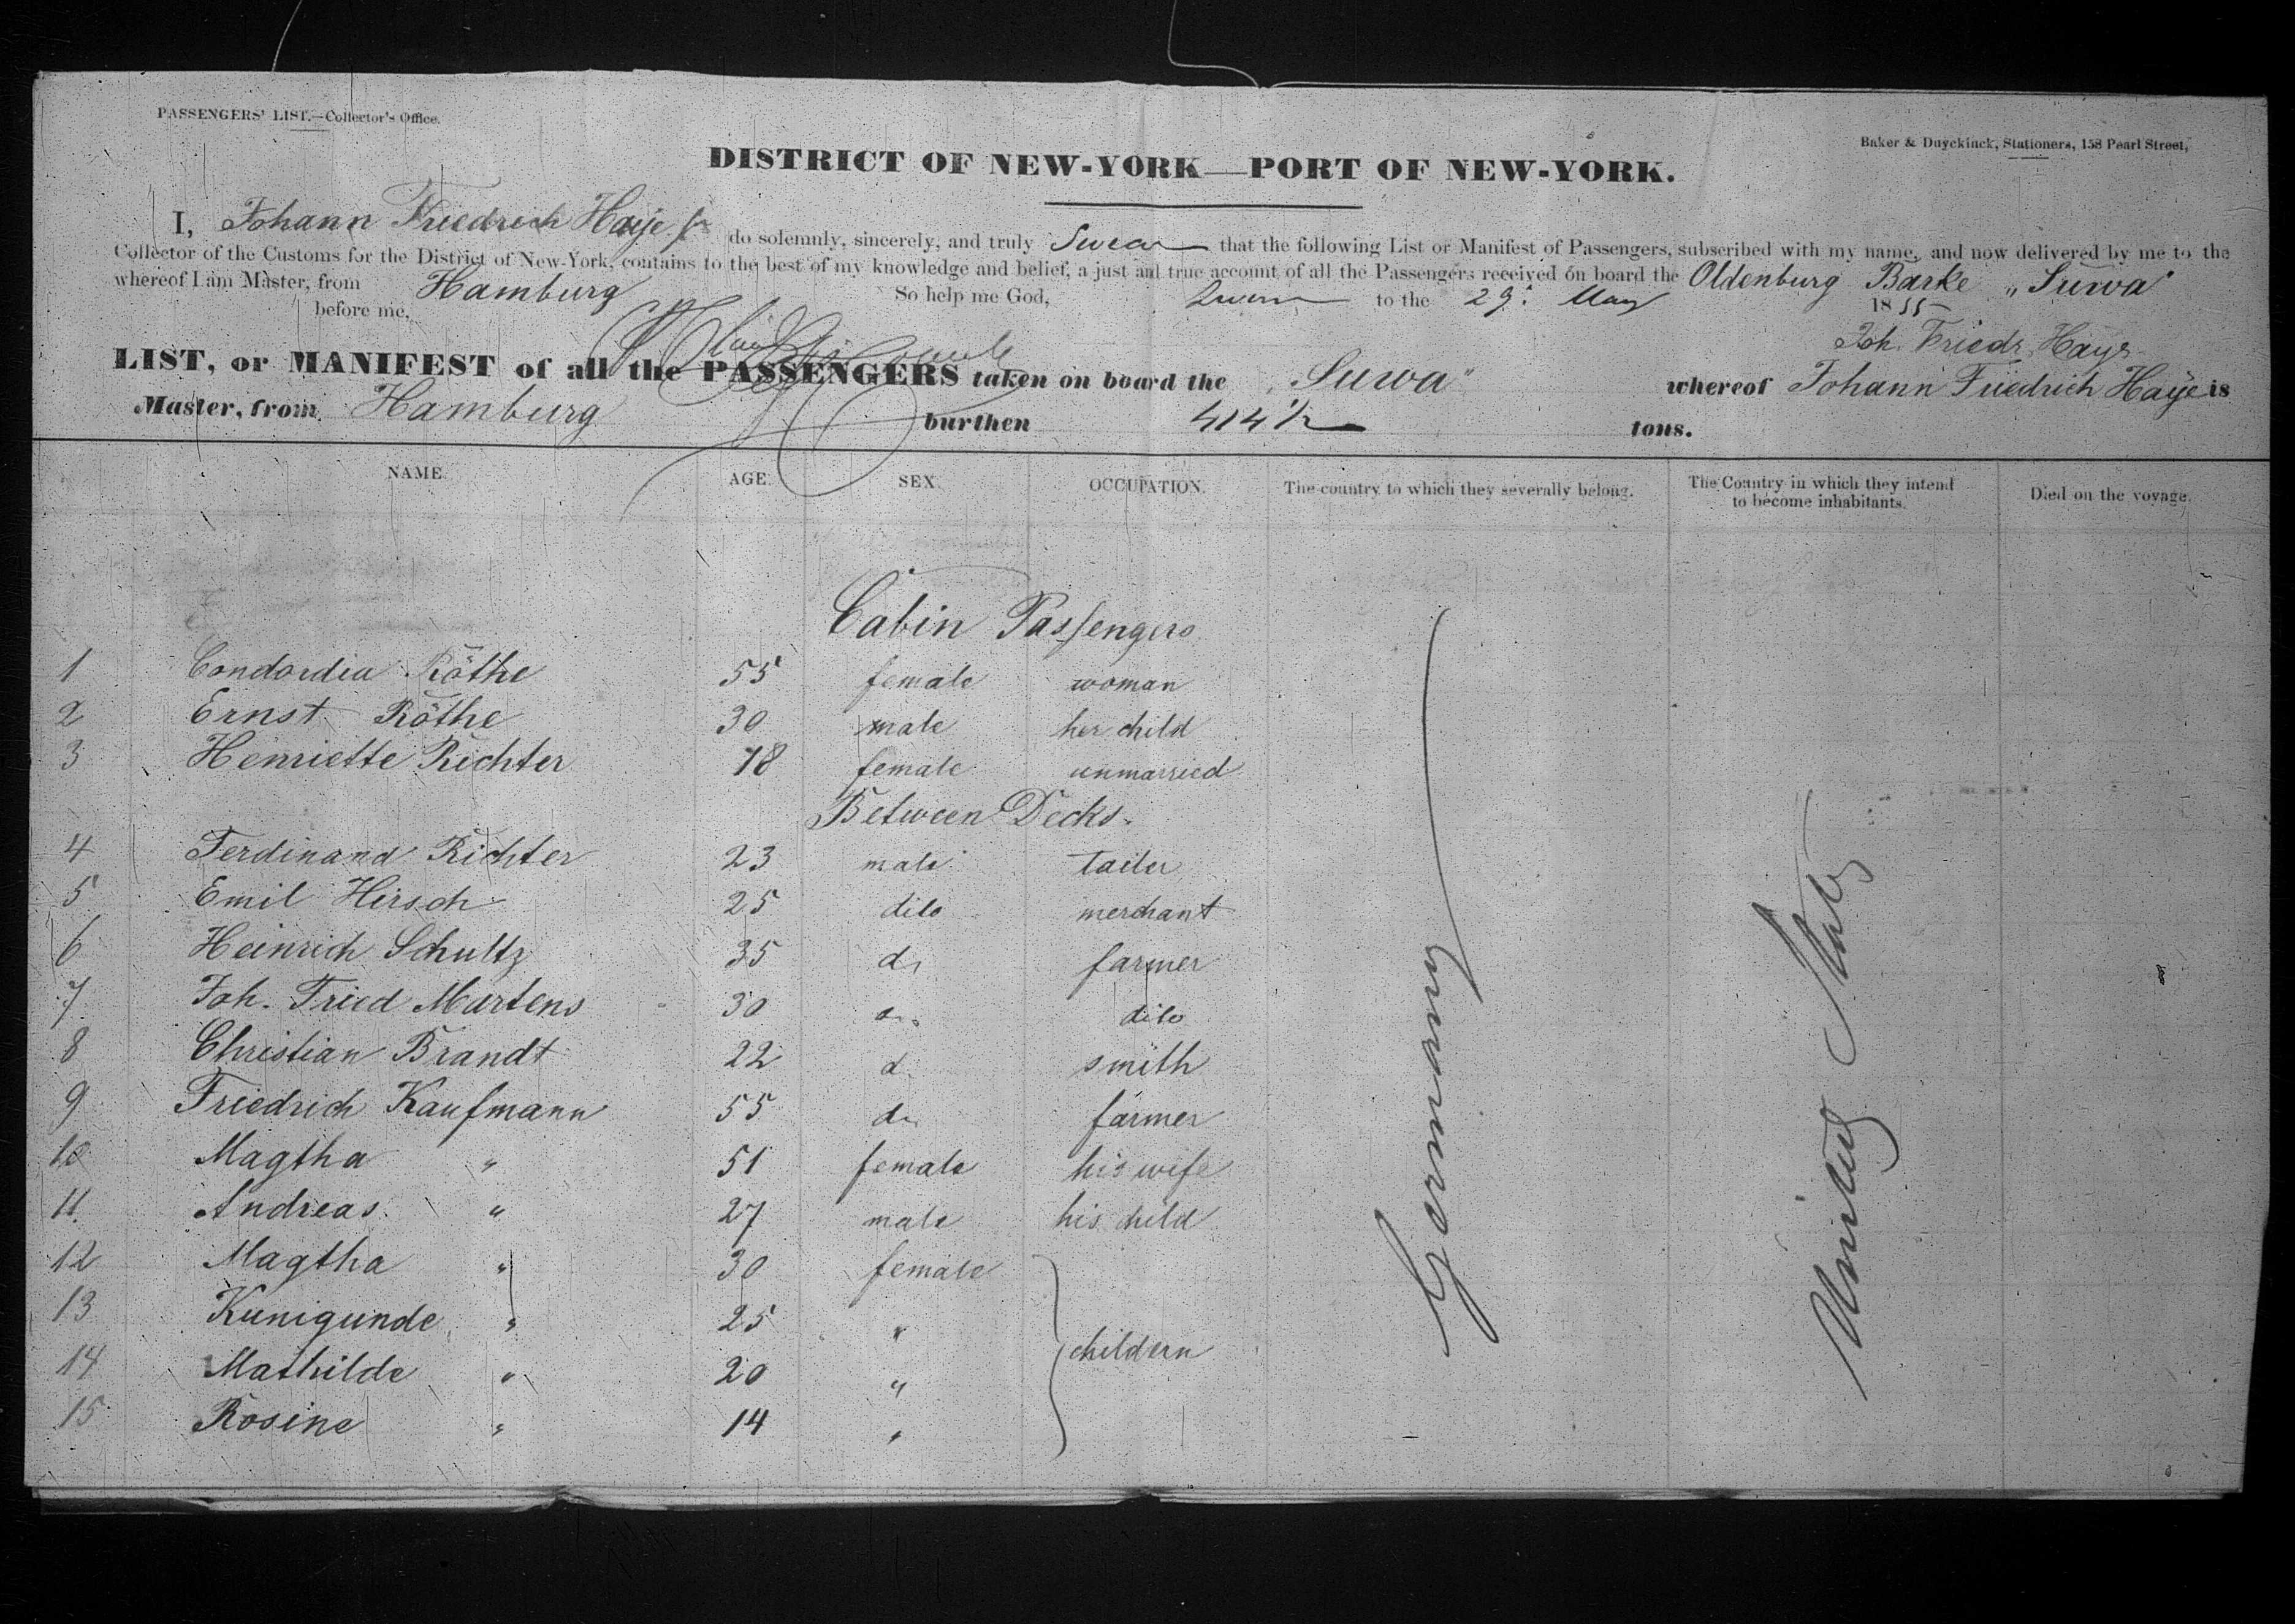 PASSENGERS' LIST.—Collector's Office.
Baker & Duyckinck, Stationers, 158 Pearl Street,
DISTRICT OF NEW-YORK—PORT OF NEW-YORK.
I, Johann Friedrich Haye jr do solemnly, sincerely, and truly Swear that the following List or Manifest of Passengers, subscribed with my name, and now delivered by me to the
Collector of the Customs for the District of New-York, contains to the best of my knowledge and belief, a just and true account of all the Passengers received on board the Oldenburg Barke „Suwa"
whereof I am Master, from Hamburg So help me God,
Sworn to the 29: May 1855
before me,
Joh. Friedr. Haye
LIST, or MANIFEST of all the PASSENGERS taken on board the „Suwa" whereof Johann Friedrich Haye is
Master, from Hamburg burthen 414 1/2 tons.
NAME. AGE. SEX. OCCUPATION. The country to which they severally belong. The Country in which they intend to become inhabitants. Died on the voyage.
Cabin Passengers
1 Condordia Röthe 55 female woman
2 Ernst Röthe 30 male her child
3 Henriette Richter 18 female unmarried
Between Decks.
4 Ferdinand Richter 23 male tailer
5 Emil Hirsch 25 dito merchant
6 Heinrich Schultz 35 do farmer
7 Joh. Fried Martens 30 do dito
8 Christian Brandt 22 d. smith
9 Friedrich Kaufmann 55 do farmer
10 Magtha " 51 female his wife
11. Andreas " 27 male his child
12 Magtha " 30 female
13 Kunigunde " 25 "
childern
14 Mathilde " 20 "
15 Rosine " 14 "
Germany
United States